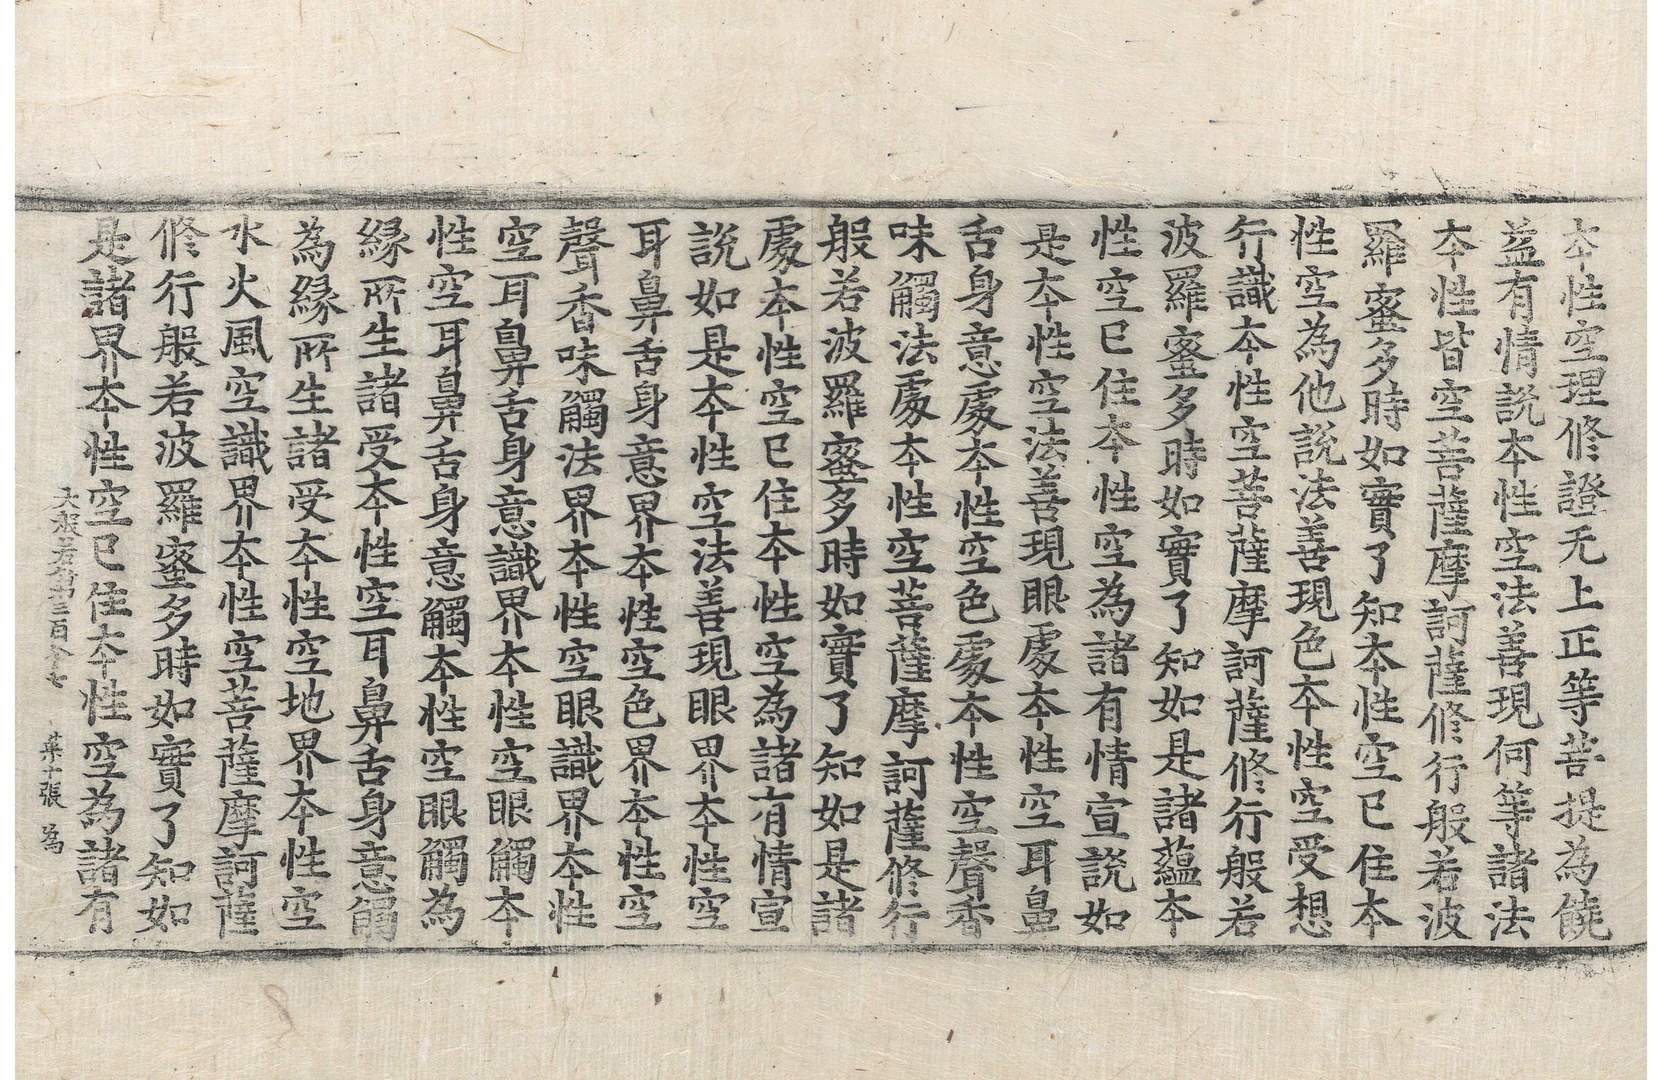 本性空理修證无上正等菩提為饒
益有情說本性空法善現何等諸法
本性皆空菩薩摩訶薩修行般若波
羅蜜多時如實了知本性空已住本
性空為他說法善現色本性空受想
行識本性空菩薩摩訶薩修行般若
波羅蜜多時如實了知如是諸蘊本
性空已住本性空為諸有情宣說如
是本性空法善現眼處本性空耳鼻
舌身意處本性空色處本性空聲香
味觸法處本性空菩薩摩訶薩修行
般若波羅蜜多時如實了知如是諸
處本性空已住本性空為諸有情宣
說如是本性空法善現眼界本性空
耳鼻舌身意界本性空色界本性空
聲香味觸法界本性空眼識界本性
空耳鼻舌身意識界本性空眼觸本
性空耳鼻舌身意觸本性空眼觸為
緣所生諸受本性空耳鼻舌身意觸
為緣所生諸受本性空地界本性空
水火風空識界本性空菩薩摩訶薩
修行般若波羅蜜多時如實了知如
是諸界本性空已住本性空為諸有
大般若第三百八十七 第十張 為